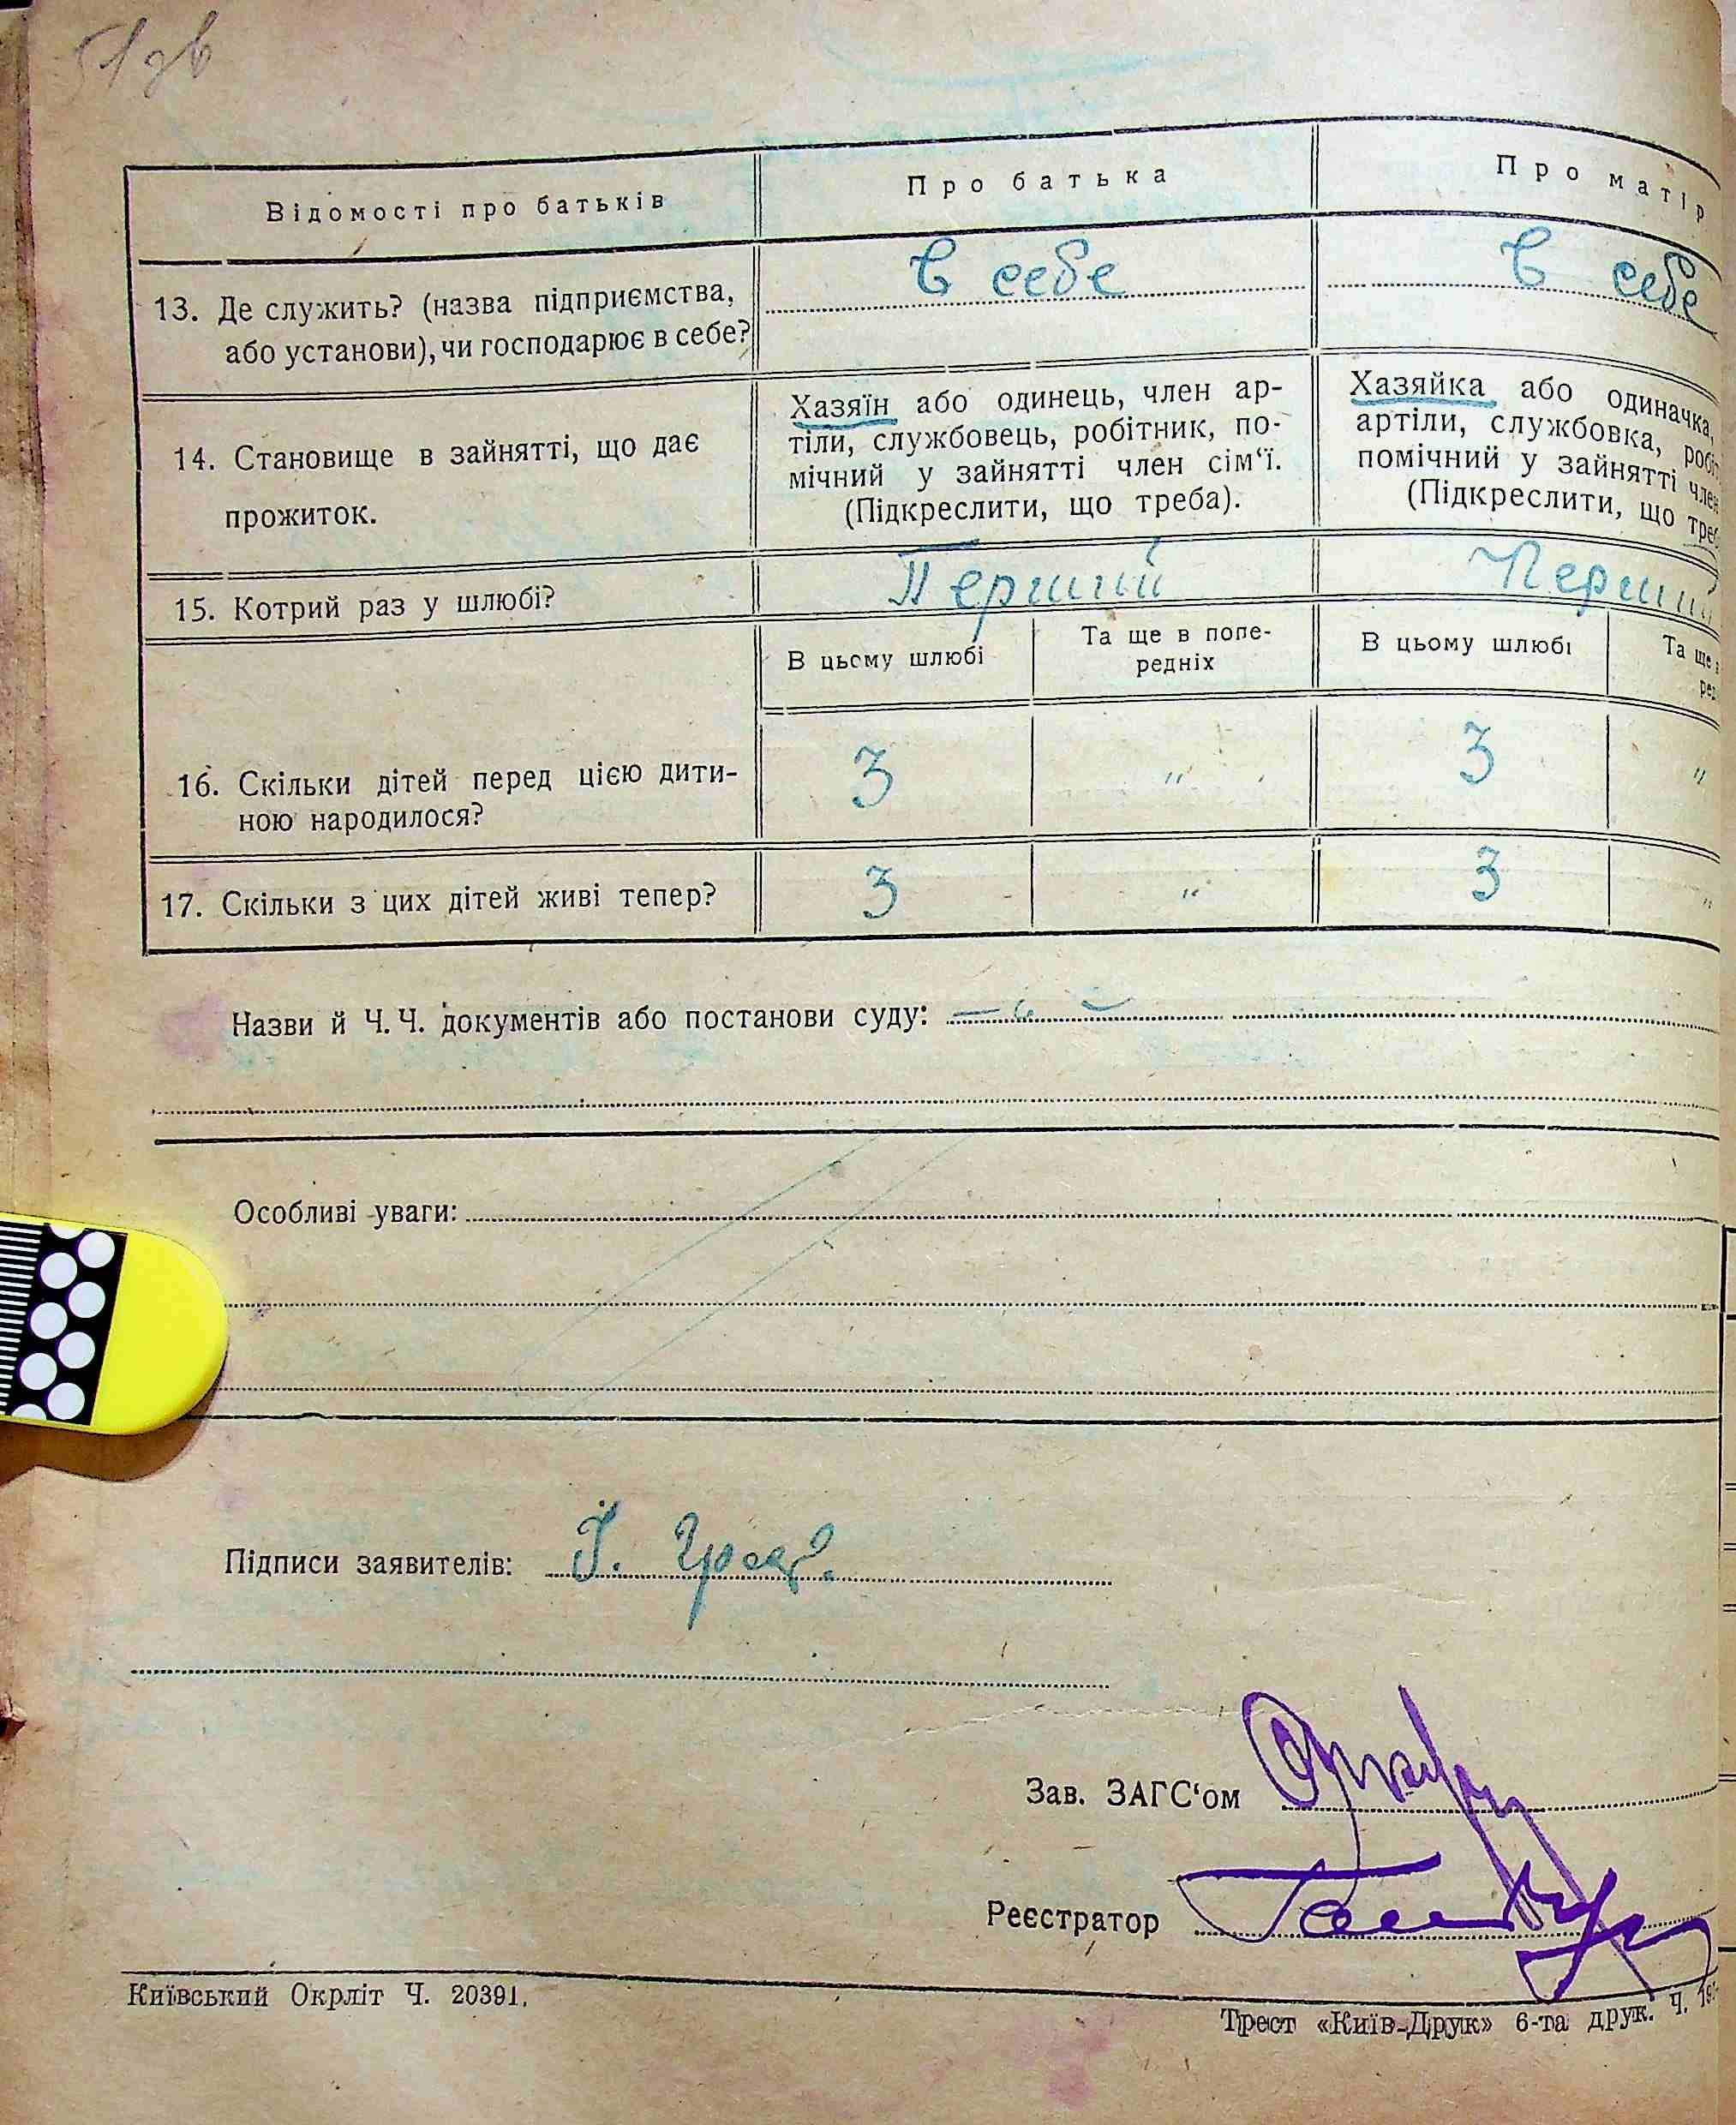 51 зв
Відомості про батьків
Про батька
Про матір
13. Де служить? (назва підприємства,
або установи), чи господарює в себе?
в себе
в себе
14. Становище в зайнятті, що дає
прожиток.
Хазяїн або одинець, член ар-
тіли, службовець, робітник, по-
мічний у зайнятті член сім‘ї.
(Підкреслити, що треба).
Хазяйка або одиначка,
артіли, службовка, робіт
помічний у зайнятті член
(Підкреслити, що треб
15. Котрий раз у шлюбі?
Перший
Перши
В цьому шлюбі
Та ще в попе-
редніх
В цьому шлюбі
Та ще в
ред
16. Скільки дітей перед цією дити-
ною народилося?
3
"
3
"
17. Скільки з цих дітей живі тепер?
3
"
3
"
Назви й Ч. Ч. документів або постанови суду:
Особливі уваги:
Підписи заявителів:
Зав. ЗАГС‘ом
Реєстратор
Київський Окрліт Ч. 20391.
Трест «Київ-Друк» 6-та друк. Ч.